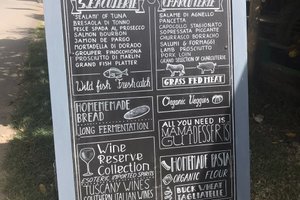 SEACUTERIE
SEALAMI OF TUNA
BRESAOLA DI TONNO
PESCE SPADA AL PROSECCO
SALMON BOURBON
JAMON DE PARGO
MORTADELLA DI DORADO
GROUPER FINOCCHIONA
PROSCIUTTO DI MARLIN
GRAND FISH PLATTER
Wild fish fresh catch
HOMEMEMADE
BREAD
LONG FERMENTATION
Wine
Reserve
Collection
ESOTERIC IMPORTED SPIRITS
TUSCANY WINES
SOUTHERN ITALIAN WINES
CHARCUTERIE
SALAME DI AGNELLO
PANCETTA
CAPICOLLO STAGIONATO
SOPRESSATA PICCANTE
CHURRASCO BORRACHO
SALUMI & FORMAGGI
LAMB PROSCIUTTO
PORK LOIN
GRAND SELECTION OF CHARCUTERIE
GRASS FED MEAT
Organic Veggies
ALL YOU NEED IS
MAMA
DESSERTS
HOMEMADE PASTA
ORGANIC FLOUR
BUCK WHEAT
TAGLIATELLE